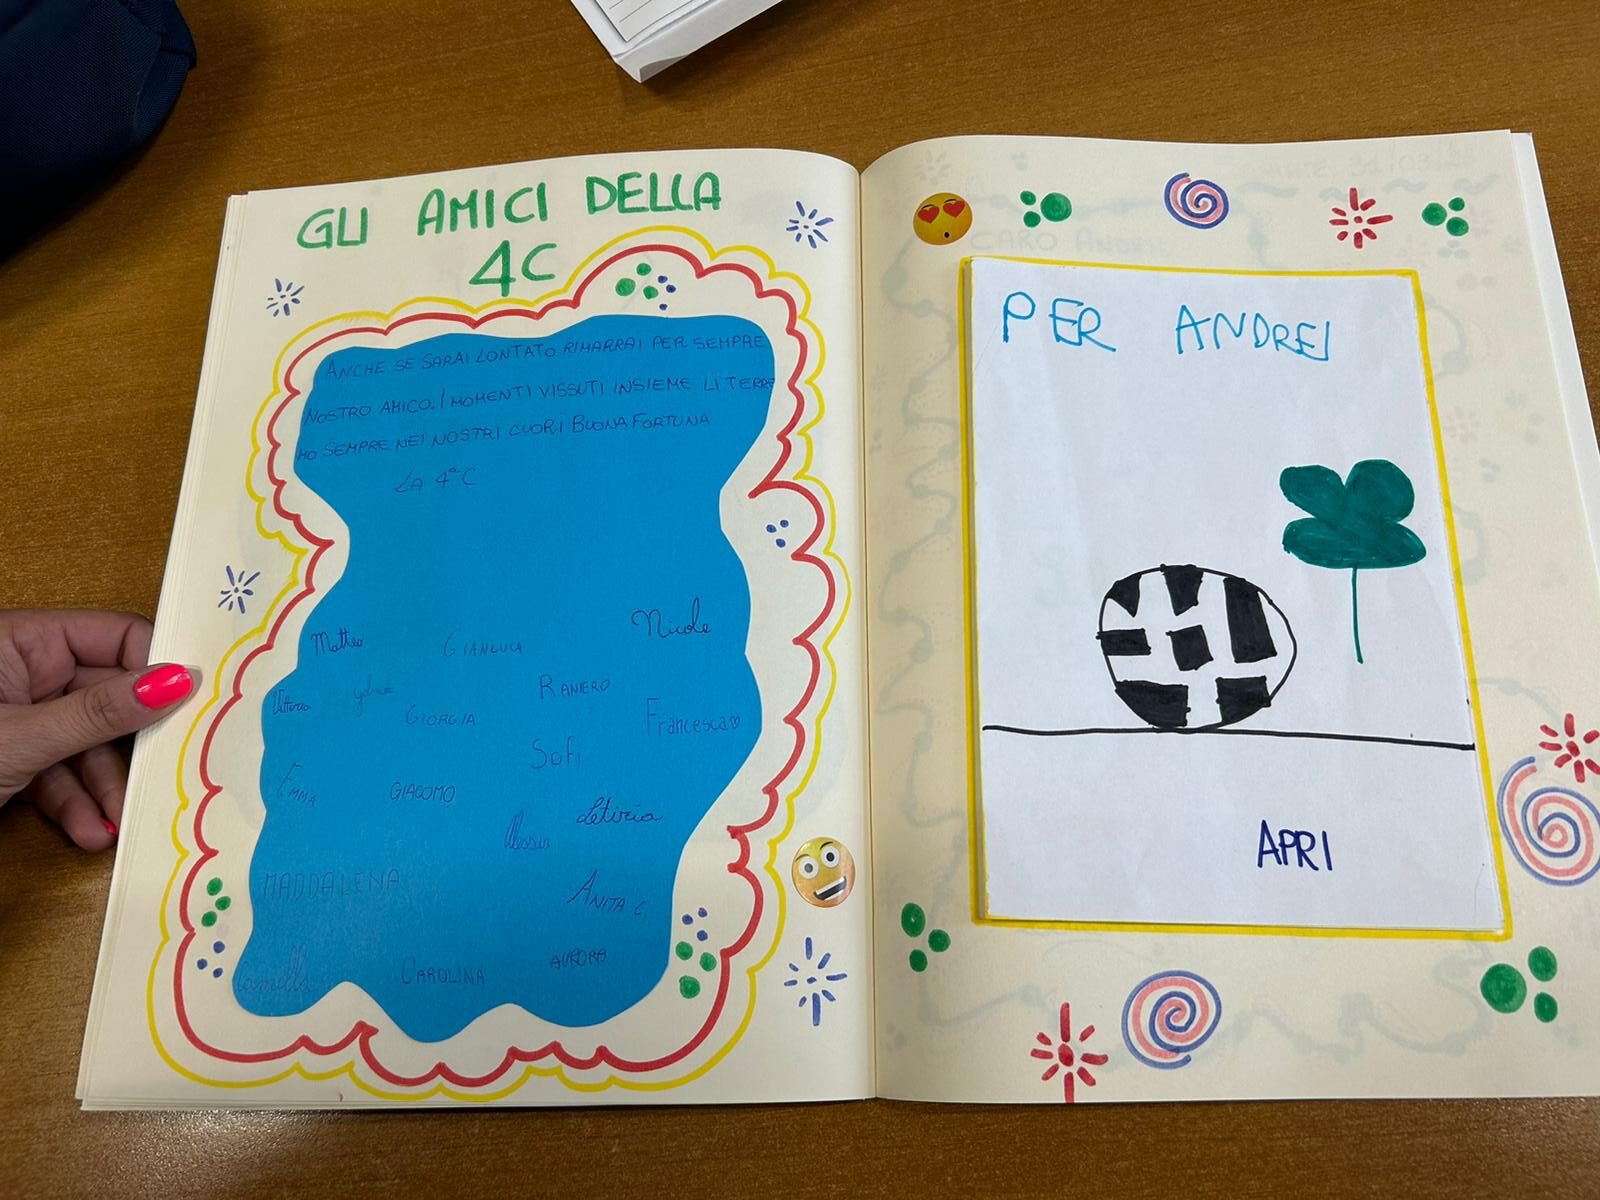 GLI AMICI DELLA
4C
ANCHE SE SARAI LONTATO RIMARRAI PER SEMPRE
NOSTRO AMICO. I MOMENTI VISSUTI INSIEME LI TERRE
MO SEMPRE NEI NOSTRI CUORI BUONA FORTUNA
LA 4ªC
Matteo GIANLUCA Nicole
Vittorio Gabriele RANIERO
GIORGIA Francesca♡
Sofi
EMMA GIACOMO Letizia
Alessio
MADDALENA ANITA C.
Camilla CAROLINA AURORA
PER ANDREI
APRI
CARO ANDREI